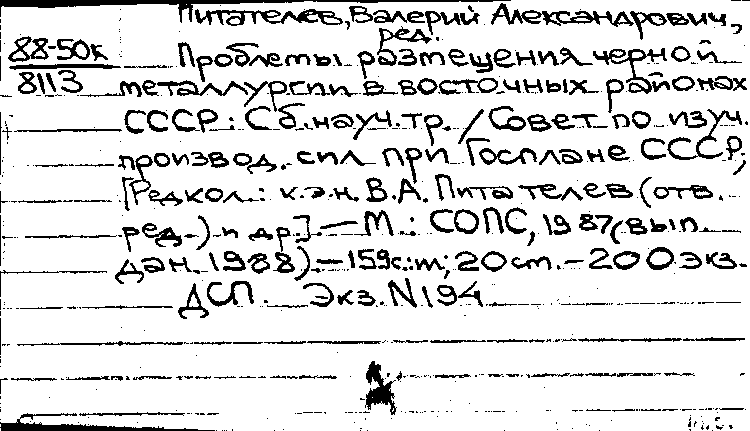 Питателев, Валерий Александрович,
ред.
88-50к Проблемы размещения черной
8113 металлургии в восточных районах
СССР: Сб. науч. тр. / Совет по изуч.
производ. сил при Госплане СССР;
[Редкол.: к.э.н. В.А. Питателев (отв.
ред.) и др.]. — М.: СОПС, 1987 (вып.
дан. 1988). — 159с.: т; 20ст. - 200 экз.
ДСП. Экз. N 194